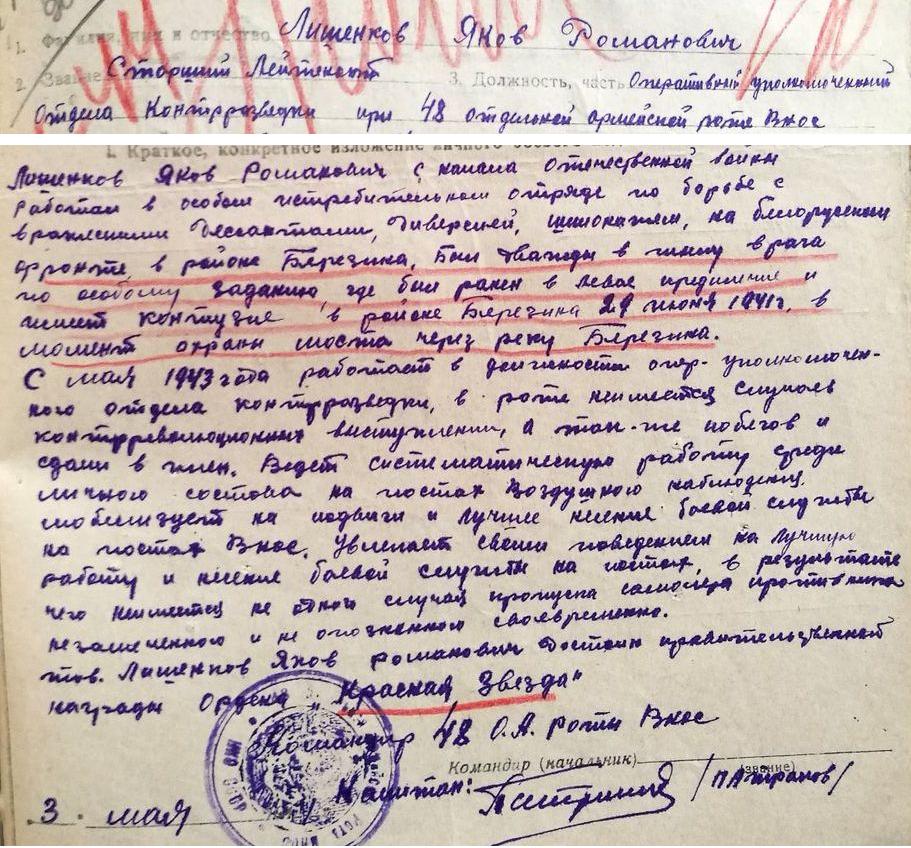 1. Фамилия, имя и отчество Лишенков Яков Романович
2. Звание Старший Лейтенант 3. Должность, часть Оперативный уполномоченный
отдела Контрразведки при 48 отдельной армейской роте Внос
I. Краткое, конкретное изложение личного боевого
Лишенков Яков Романович с начала отечественной войны
работал в особом истребительном отряде по борьбе с
вражескими Дессантами, Диверсией, шпионажем, на белорусском
фронте, в районе Березина. Был дважды в тылу врага
по особому заданию, где был ранен в левое предплечие и
имеет контузие в районе Березина 29 июня 1941г. в
момент охраны моста через реку Березина.
С мая 1943 года работает в должности опер-уполномочен-
ного отдела контрразведки, в роте неимеется случаев
контрреволюционных выступлении, а так-же побегов и
сдачи в плен. Ведет систематическую работу среди
личного состава на постах воздушного наблюдения
мобилизует на подвиги и лучшее несение боевой службы
на постах Внос. Увлекает своим поведением на лучшую
работу и несение боевой службы на постах, в результате
чего неимеется не одного случая пропуска самолета противника
незамеченного и не опознанного своевременно.
тов. Лишенков Яков Романович достоин правительственной
награды Ордена „Красная Звезда"
Командир 48 О.А. роты Внос
Командир (начальник) (звание)
Капитан: /Патранов/
„3" мая